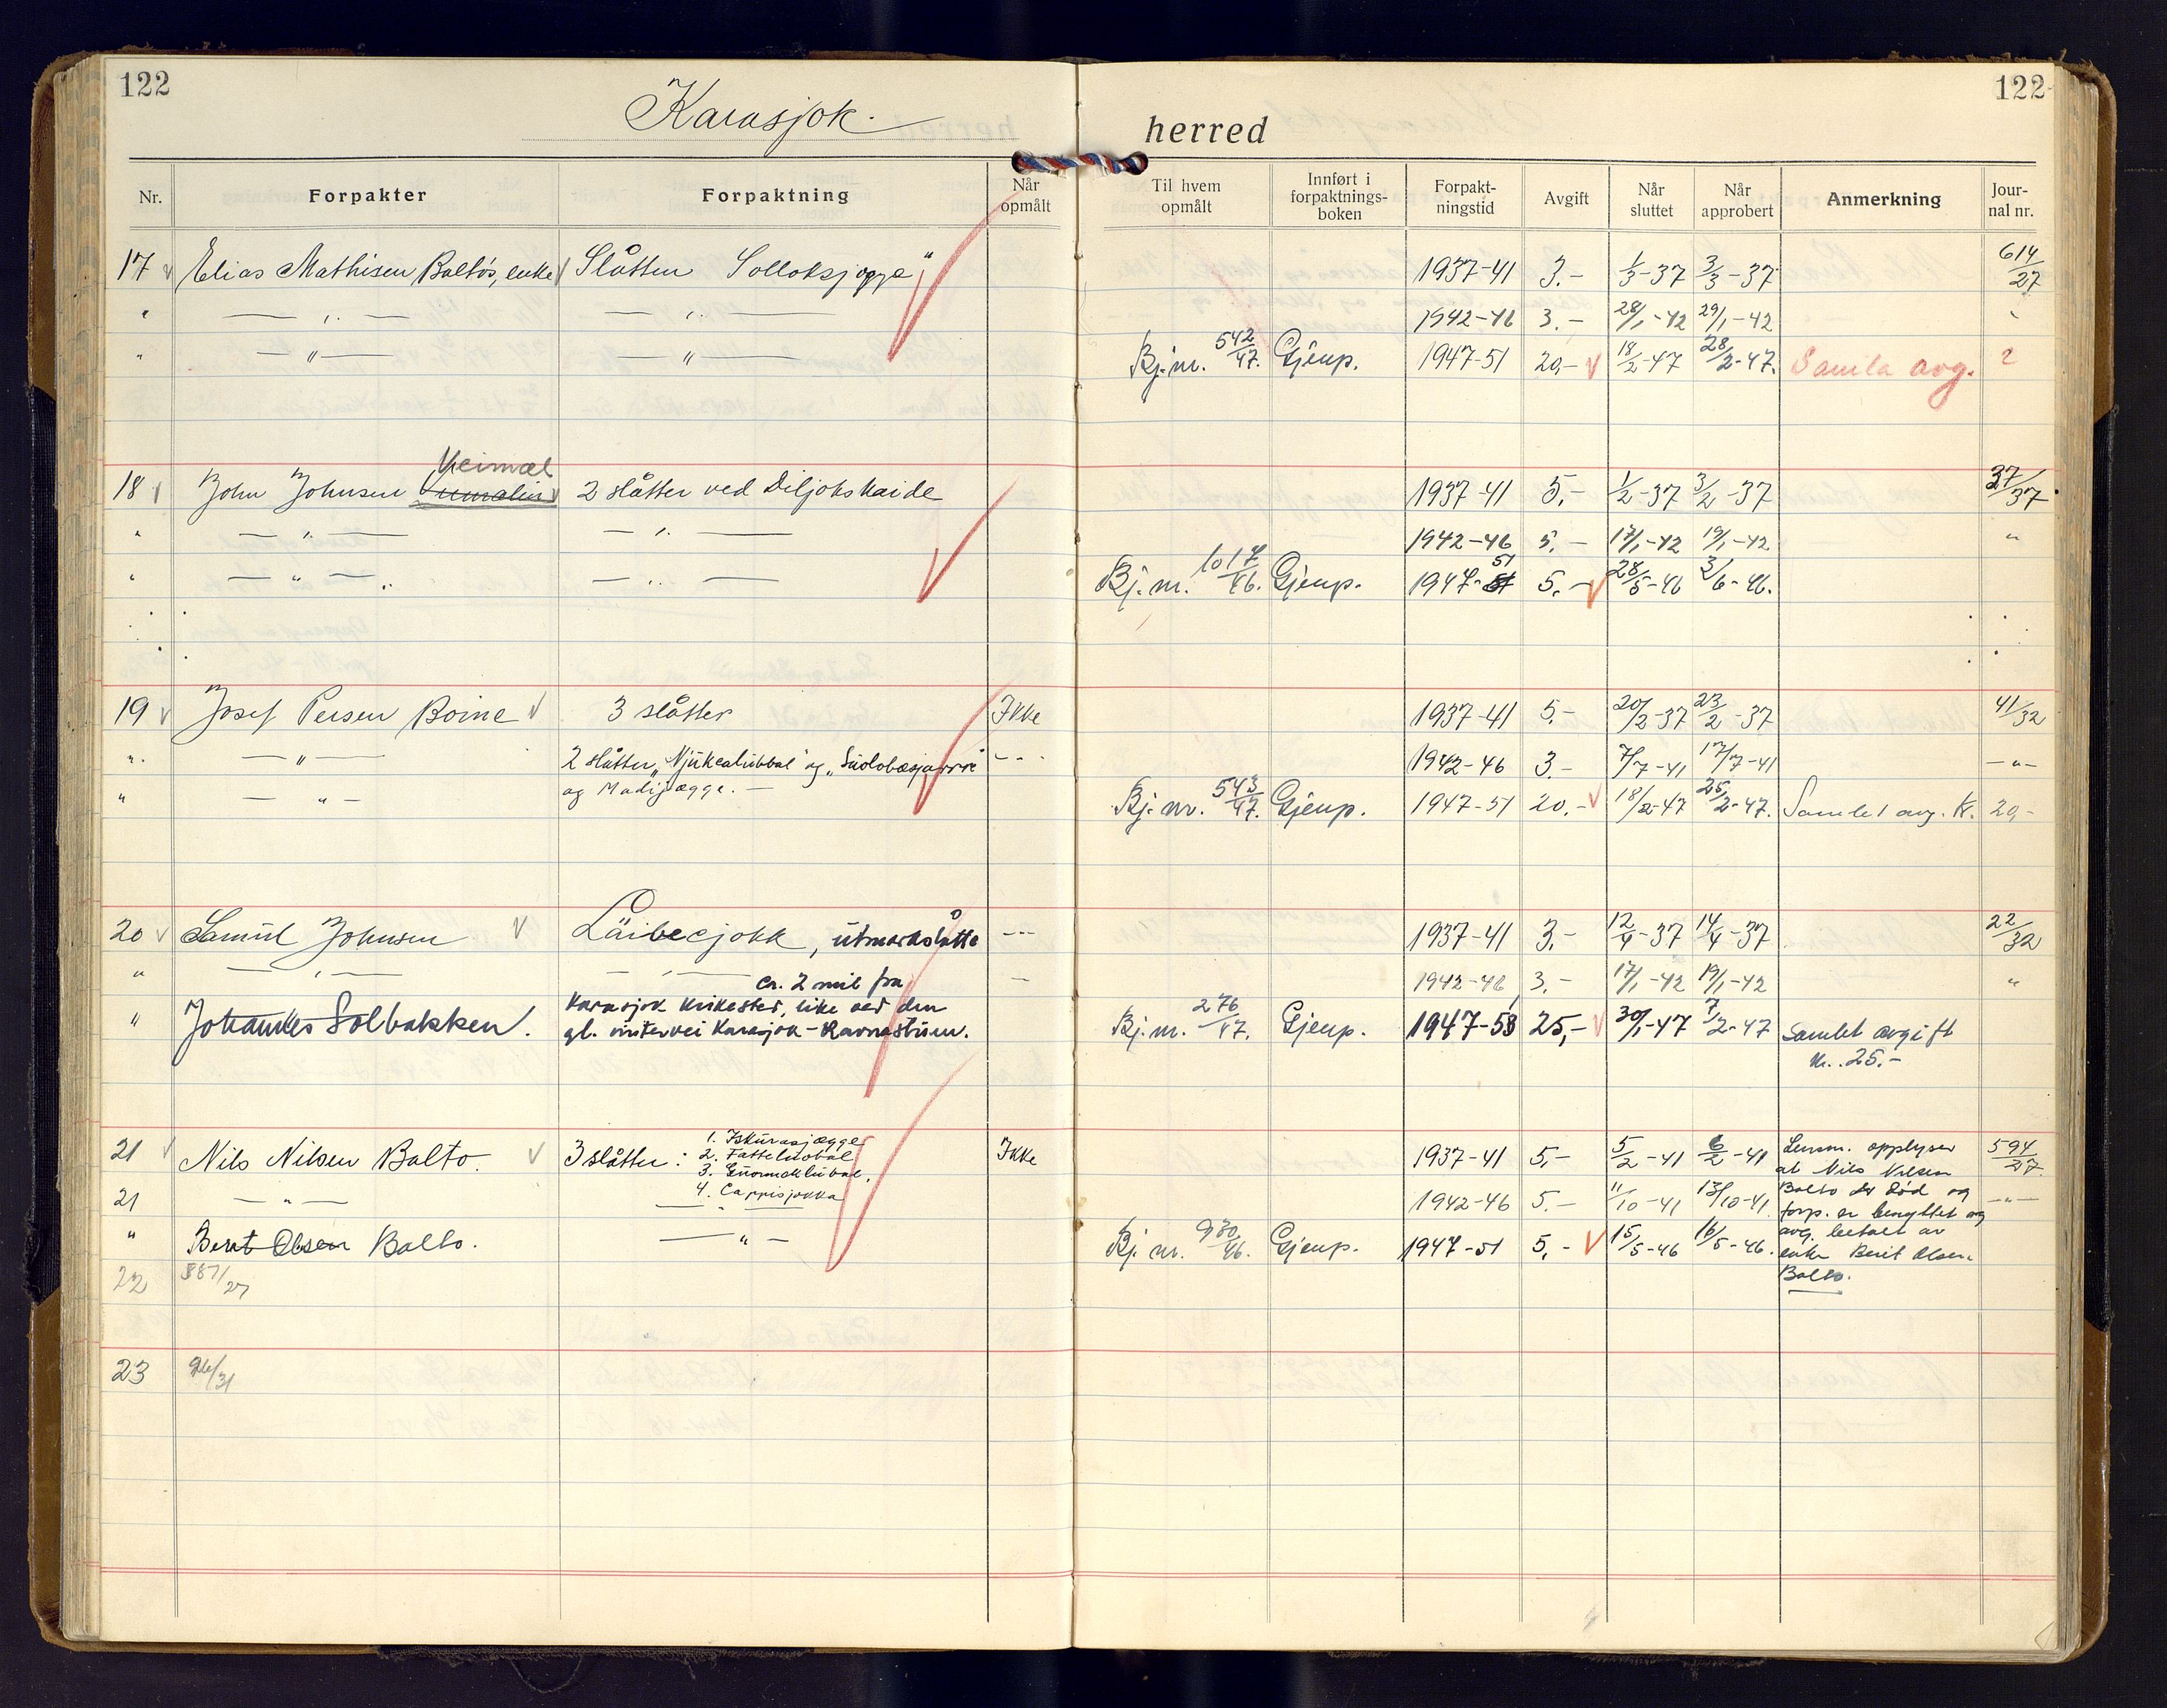 122
122
Karasjok.
herred
Nr. Forpakter Forpaktning Når opmålt Til hvem opmålt Innført i forpaktnings-boken Forpakt-ningstid Avgift Når sluttet Når approbert Anmerkning Jour-nal nr.
17 Elias Mathisen Balto's, enke Slåtten Solloksjægge" 1937-41 3.- 1/3-37 3/3-37 614/27
" —〃— —〃— 1942-46 3.- 28/1-42 29/1-42 "
" —〃— —〃— Bj. nr. 542/47. Gjenp. 1947-51 20,- 18/2-47 28/2-47. Samla avg. ?
Veimæl
18 John Johnsen 2 slåtter ved Diljokskaide 1937-41 5.- 1/2-37 3/2-37 37/37
" —〃— —〃— 1942-46 5.- 17/1-42 19/1-42 "
" —〃— —〃— Bj. nr. 1017/46. Gjenp. 1947-51 5.- 28/5-46 3/6-46.
19 Josef Persen Boine 3 slåtter Ikke 1937-41 5.- 20/2-37 23/2-37 41/32
" —〃— 2 slåtter "Njukcalubbal" og "Suolobæsjavrre" --- 1942-46 3.- 7/7-41 17/7-41 —〃—
" —〃— og Madijægge. — Bj. nr. 543/47. Gjenp. 1947-51 20.- 18/2-47 25/2-47. Samlet avg. Kr. 20,-
20 Samuel Johnsen Läibecjokk, utmarkslåtte --- 1937-41 3.- 12/4-37 14/4-37 22/32
" —〃— —〃— ca. 2 mil fra — 1942-46 3.- 17/1-42 19/1-42 "
" Johannes Solbakken. Karasjok kirkested, like ved den
gl. vintervei Karasjok - Ravnastuen. Bj. nr. 276/47. Gjenp. 1947-51 25,- 30/1-47 7/2-47 Samlet avgift
kr. 25.-
21 Nils Nilsen Balto. 3 slåtter: 1. Iskurasjægge Ikke 1937-41 5,- 5/2-41 6/2-41 Lensm. opplyser 594/27
2. Fattelluobal at Nils Nilsen
3. Guormakluobal.
21 —〃— 4. Carrisjokka 1942-46 5.- 11/10-41 13/10-41 Balto er død og —〃—
forp. er benyttet og
" Berit Olsen Balto. —〃— Bj. nr. 930/46. Gjenp. 1947-51 5,- 15/5-46 16/5-46. avg. betalt av
enke Berit Olsen
Balto.
22 587/27
23 96/31